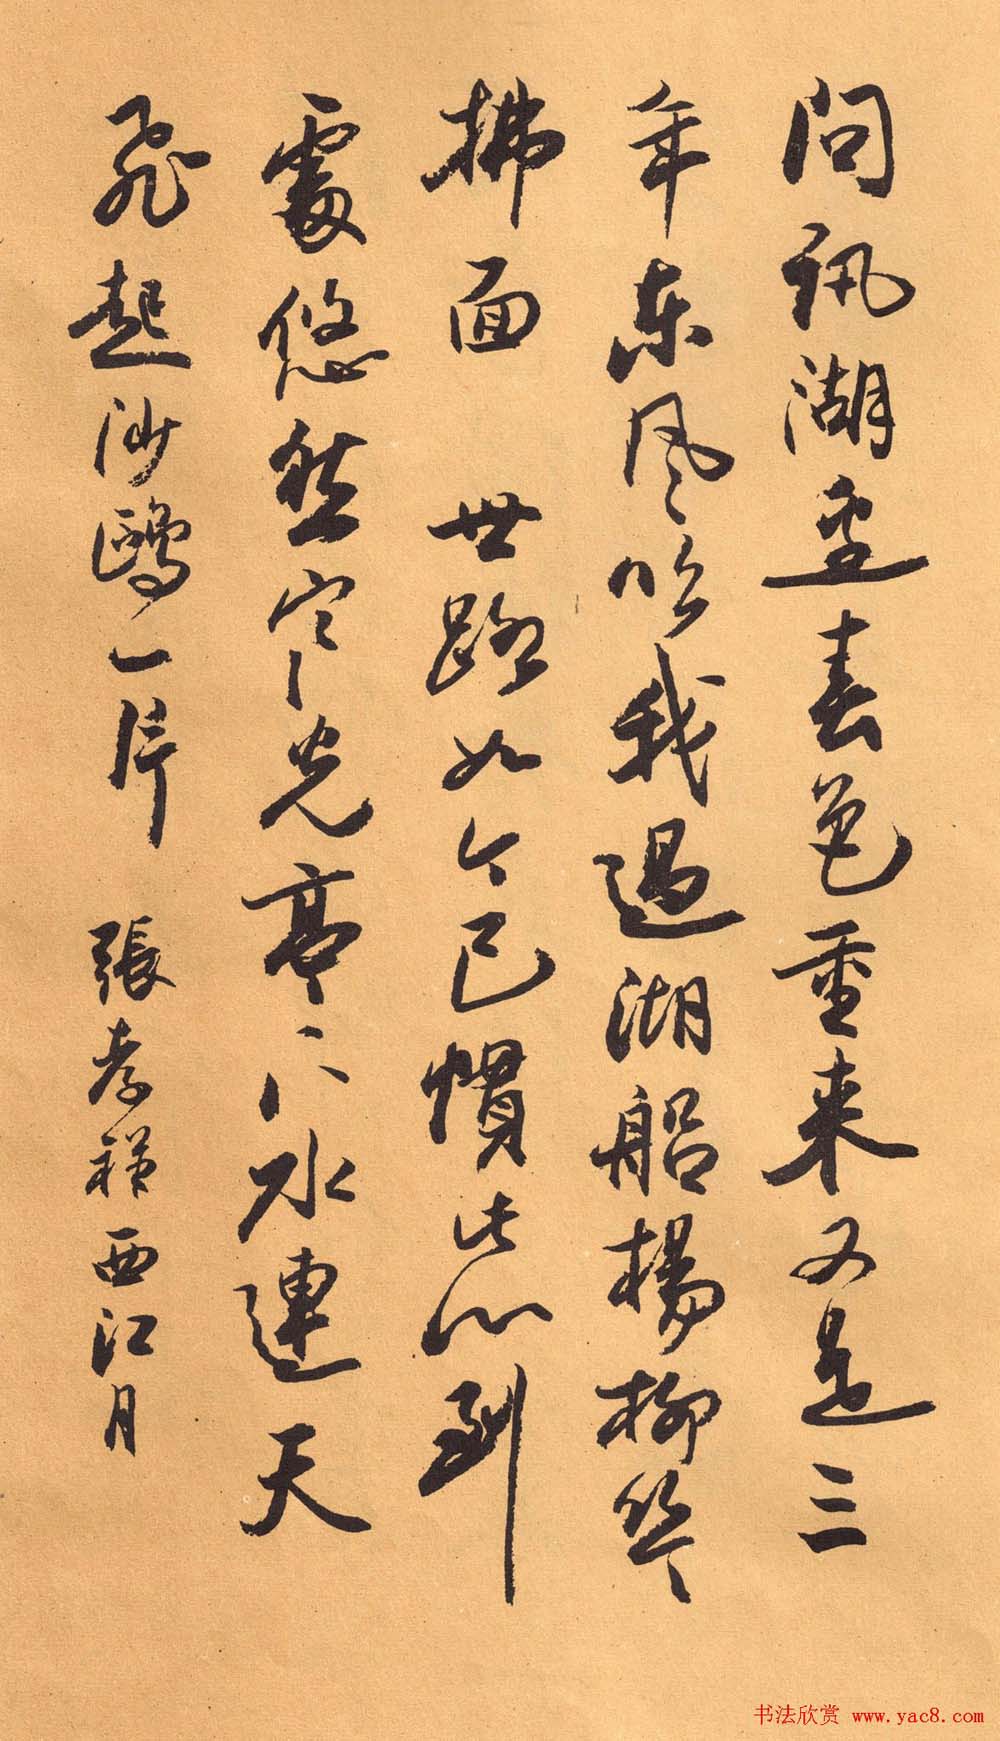 问訊湖邊春色重来又是三
年東風吹我過湖船楊柳丝丝
拂面 世路如今已慣此心到
處悠然寒光亭下水連天
飛起沙鷗一片 張孝祥西江月
书法欣赏 www.yac8.com